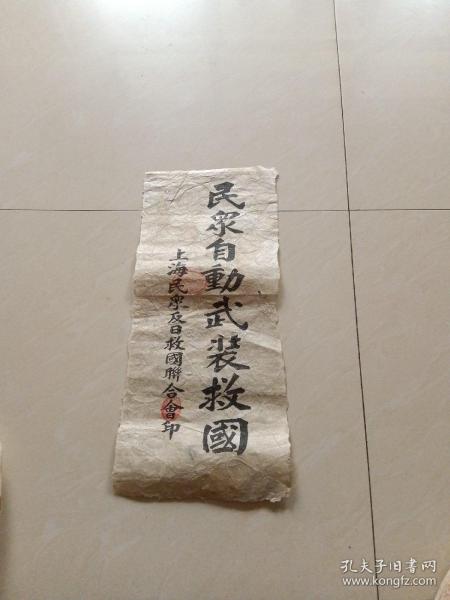 民衆自動武装救國
上海民衆反日救國聯合會印
孔夫子旧书网
www.kongfz.com